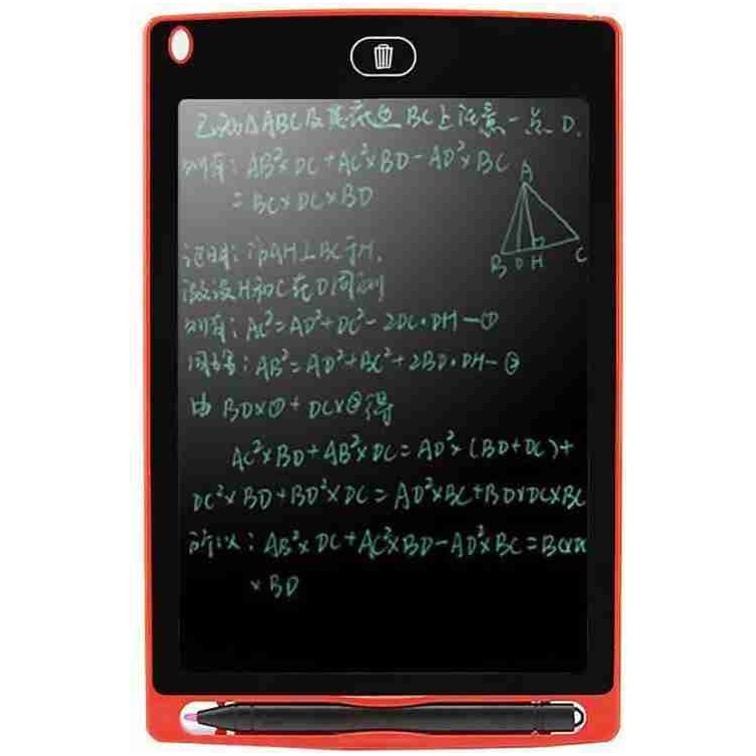 已知△ABC及其底边BC上任意一点D.
则有: AB²×DC+AC²×BD-AD²×BC
= BC×DC×BD
A
B D H C
证明: 作AH⊥BC于H,
假设H和C在D同侧
则有: AC²=AD²+DC²-2DC·DH-①
同理: AB²=AD²+BC²+2BD·DH-②
由 BD×①+DC×②得
AC²×BD+AB²×DC=AD²×(BD+DC)+
DC²×BD+BD²×DC=AD²×BC+BD×DC×BC
所以: AB²×DC+AC²×BD-AD²×BC=
×BD